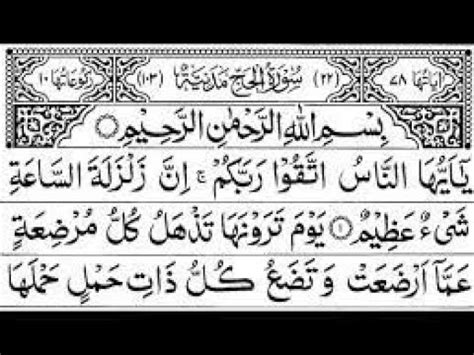 اٰيَاتُهَا ٧٨ (٢٢) سُوْرَةُ الْحَجِّ مَدَنِيَّةٌ (١٠٣) رُكُوْعَاتُهَا ١٠
بِسْمِ اللّٰهِ الرَّحْمٰنِ الرَّحِيْمِ
يٰۤاَيُّهَا النَّاسُ اتَّقُوْا رَبَّكُمْ ۚ اِنَّ زَلْزَلَةَ السَّاعَةِ
شَىْءٌ عَظِيْمٌ ۝١ يَوْمَ تَرَوْنَهَا تَذْهَلُ كُلُّ مُرْضِعَةٍ
عَمَّاۤ اَرْضَعَتْ وَ تَضَعُ كُلُّ ذَاتِ حَمْلٍ حَمْلَهَا